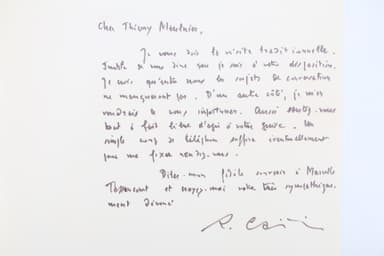 Cher Thierry Maulnier,
Je vous dois la visite traditionnelle.
Inutile de vous dire que je suis à votre disposition.
Je crois qu'entre nous les sujets de conversation
ne manqueront pas. D'un autre côté, je m'en
voudrais de vous importuner. Aussi sentez-vous
tout à fait libre d'agir à votre guise. Un
simple coup de téléphone suffira éventuellement
pour me fixer rendez-vous.
Dites mon fidèle souvenir à Marcelle
Tassencourt et croyez-moi votre très sympathique-
ment dévoué
R. Cai